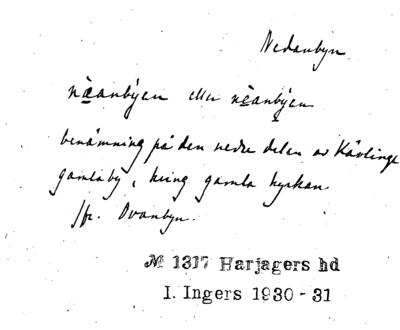 Nedanbyn
nèanbýen eller nèanbýen
benämning på den nedre delen av Kävlinge
gamla by, kring gamla kyrkan
Jfr. Ovanbyn.
№ 1317 Harjagers hd
I. Ingers 1930-31